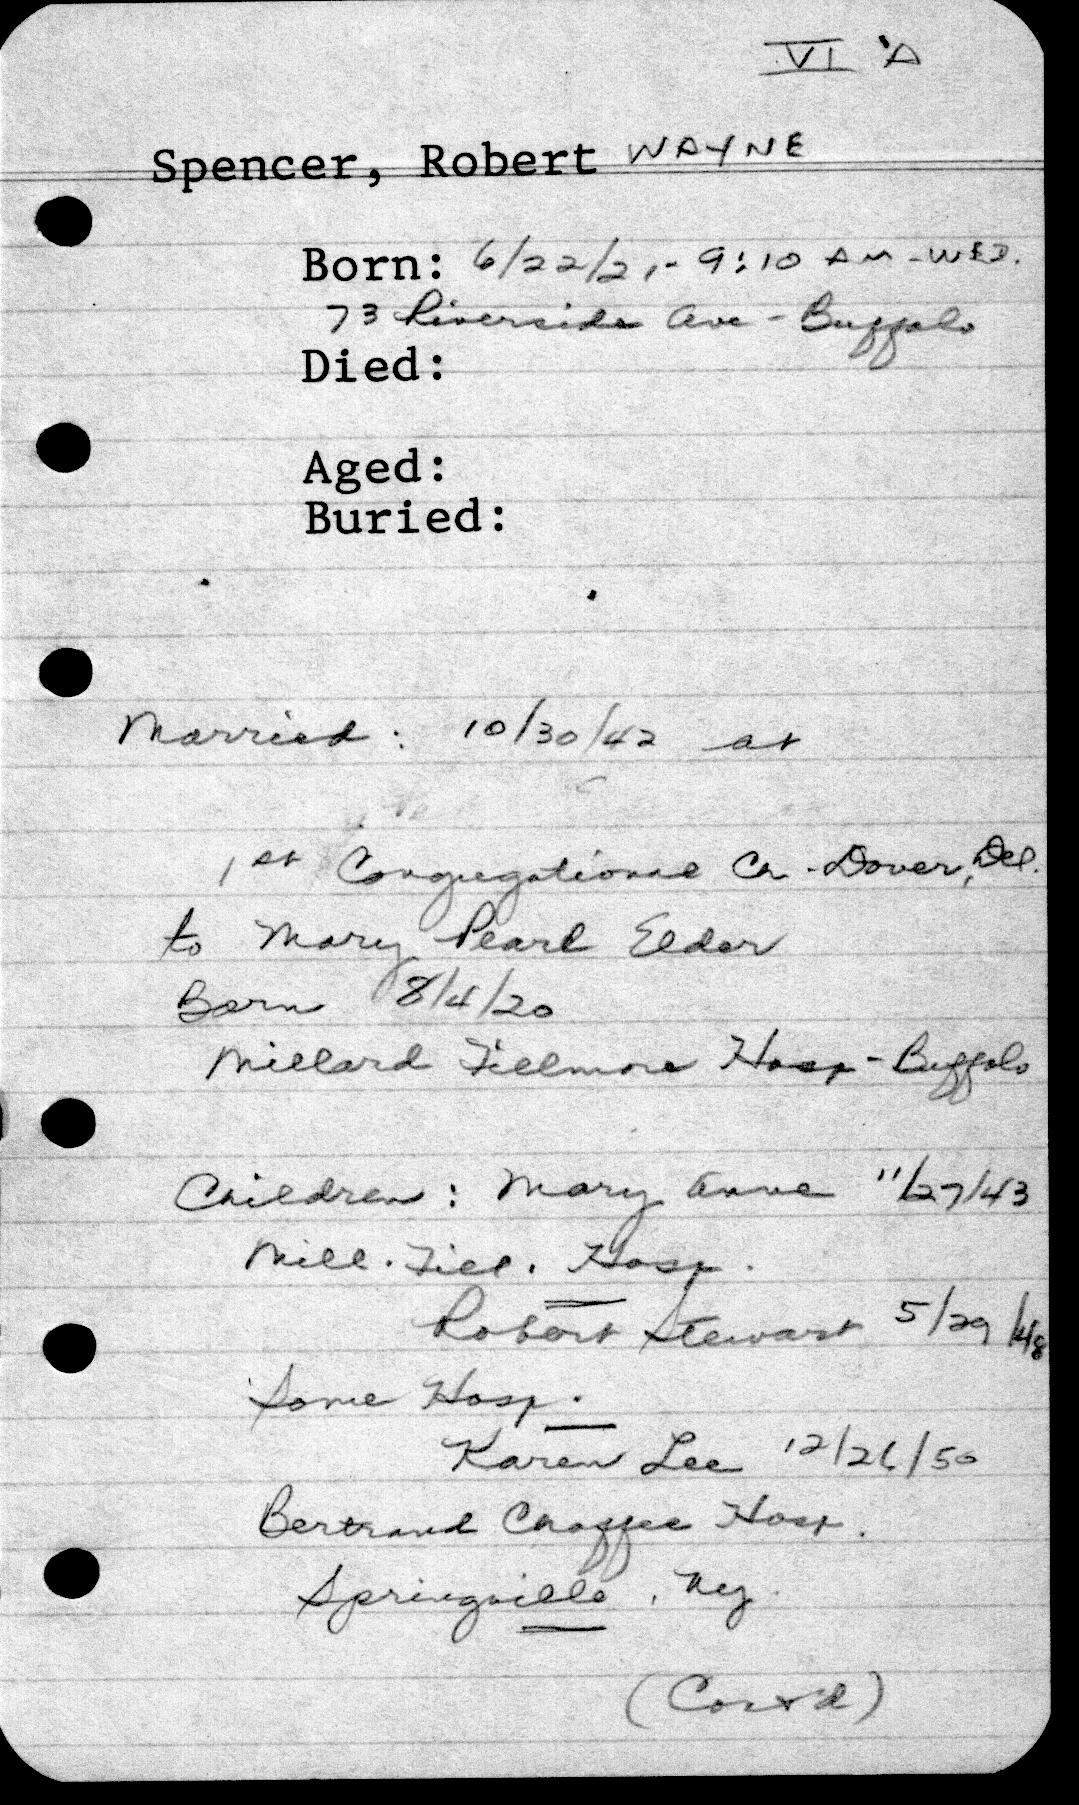 VI 'A
Spencer, Robert WAYNE
Born: 6/22/21 - 9:10 AM - WED.
73 Riverside Ave - Buffalo
Died:
Aged:
Buried:
Married: 10/30/42 at
1st Congregational Ch - Dover, Del.
to Mary Pearl Elder
Born 8/4/20
Millard Fillmore Hosp - Buffalo
Children: Mary Anne 11/27/43
Mill. Fill. Hosp.
Robert Stewart 5/29/48
Same Hosp.
Karen Lee 12/26/50
Bertrand Chaffee Hosp.
Springville, NY.
(Cont'd)